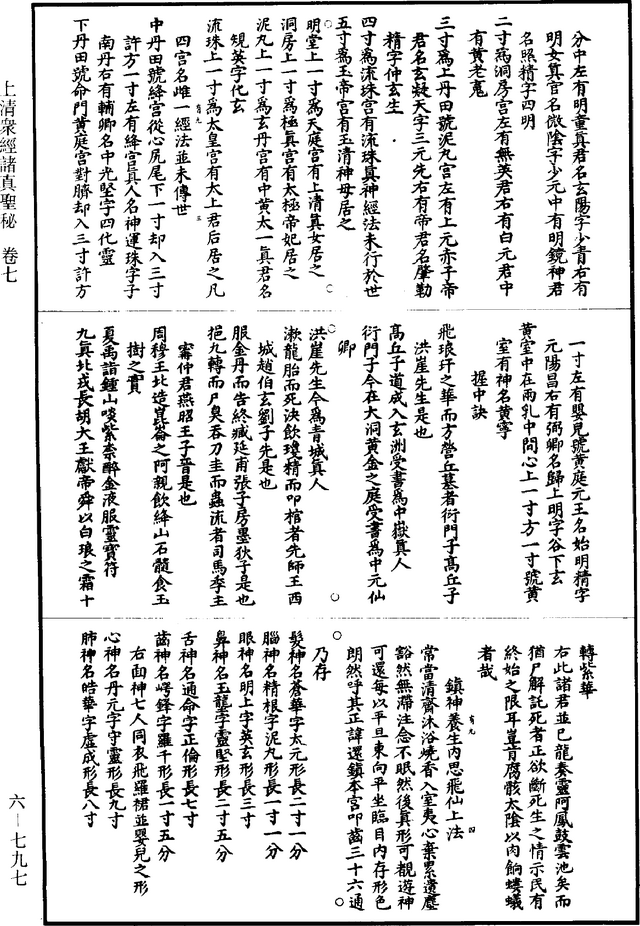 上清衆經諸真聖秘 卷七
分中左有明童真君名玄陽字少青右有
明女真官名微陰字少元中有明鏡神君
名照精字四明
二寸爲洞房宮左有無英君右有白元君中
有黃老君
三寸爲上丹田號泥丸宮左有上元赤子帝
君名玄凝天字三元先右有帝君名肇勒
精字仲玄生
四寸爲流珠宮有流珠真神經法未行於世
五寸爲玉帝宮有玉清神母居之
明堂上一寸爲天庭宮有上清真女居之
洞房上一寸爲極真宮有太極帝妃居之
泥丸上一寸爲玄丹宮有中黃太一真君名
規英字化玄
流珠上一寸爲太皇宮有太上君后居之凡
四宮名雌一經法並未傳世
中丹田號絳宮從心尻尾下一寸却入三寸
許方一寸左有絳宮真人名神運珠字子
南丹右有輔卿名中光堅字四化靈
下丹田號命門黃庭宮對臍却入三寸許方
一寸左有嬰兒號黃庭元王名始明精字
元陽昌右有弼卿名歸上明字谷下玄
黃室中在兩乳中間心上一寸方一寸號黃
室有神名黃寧
握中訣
飛琅玕之華而方營丘墓者衍門子高丘子
洪崖先生是也
高丘子道成入玄洲受書爲中嶽真人
衍門子今在大洞黃金之庭受書爲中元仙
卿
洪崖先生今爲青城真人
漱龍胎而死決飲瓊精而叩棺者先師王西
城趙伯玄劉子先是也
服金丹而告終臧延甫張子房墨狄子是也
挹九轉而尸臭吞刀圭而蟲流者司馬季主
甯仲君燕昭王子晉是也
周穆王北造崑崙之阿親飲絳山石髓食玉
樹之實
夏禹詣鍾山啖紫柰醉金液服靈寶符
九真北戎長胡大王獻帝舜以白琅之霜十
轉紫華
右此諸君並已龍奏靈阿鳳鼓雲池矣而
猶尸解託死者正欲斷死生之情示民有
終始之限耳豈肯腐骸太陰以肉餉螻蟻
者哉
鎮神養生內思飛仙上法
常當清齋沐浴燒香入室夷心棄累遺塵
豁然無滯注念不眠然後真形可覩遊神
可還每以平旦東向平坐臨目內存形色
朗然呼其正諱還鎮本宮叩齒三十六通
乃存
髮神名蒼華字太元形長二寸一分
腦神名精根字泥丸形長一寸一分
眼神名明上字英玄形長三寸
鼻神名玉壟字靈堅形長二寸五分
舌神名通命字正倫形長七寸
齒神名崿鋒字羅千形長一寸五分
右面神七人同衣飛羅裙並嬰兒之形
心神名丹元字守靈形長九寸
肺神名皓華字虛成形長八寸
六-七九七